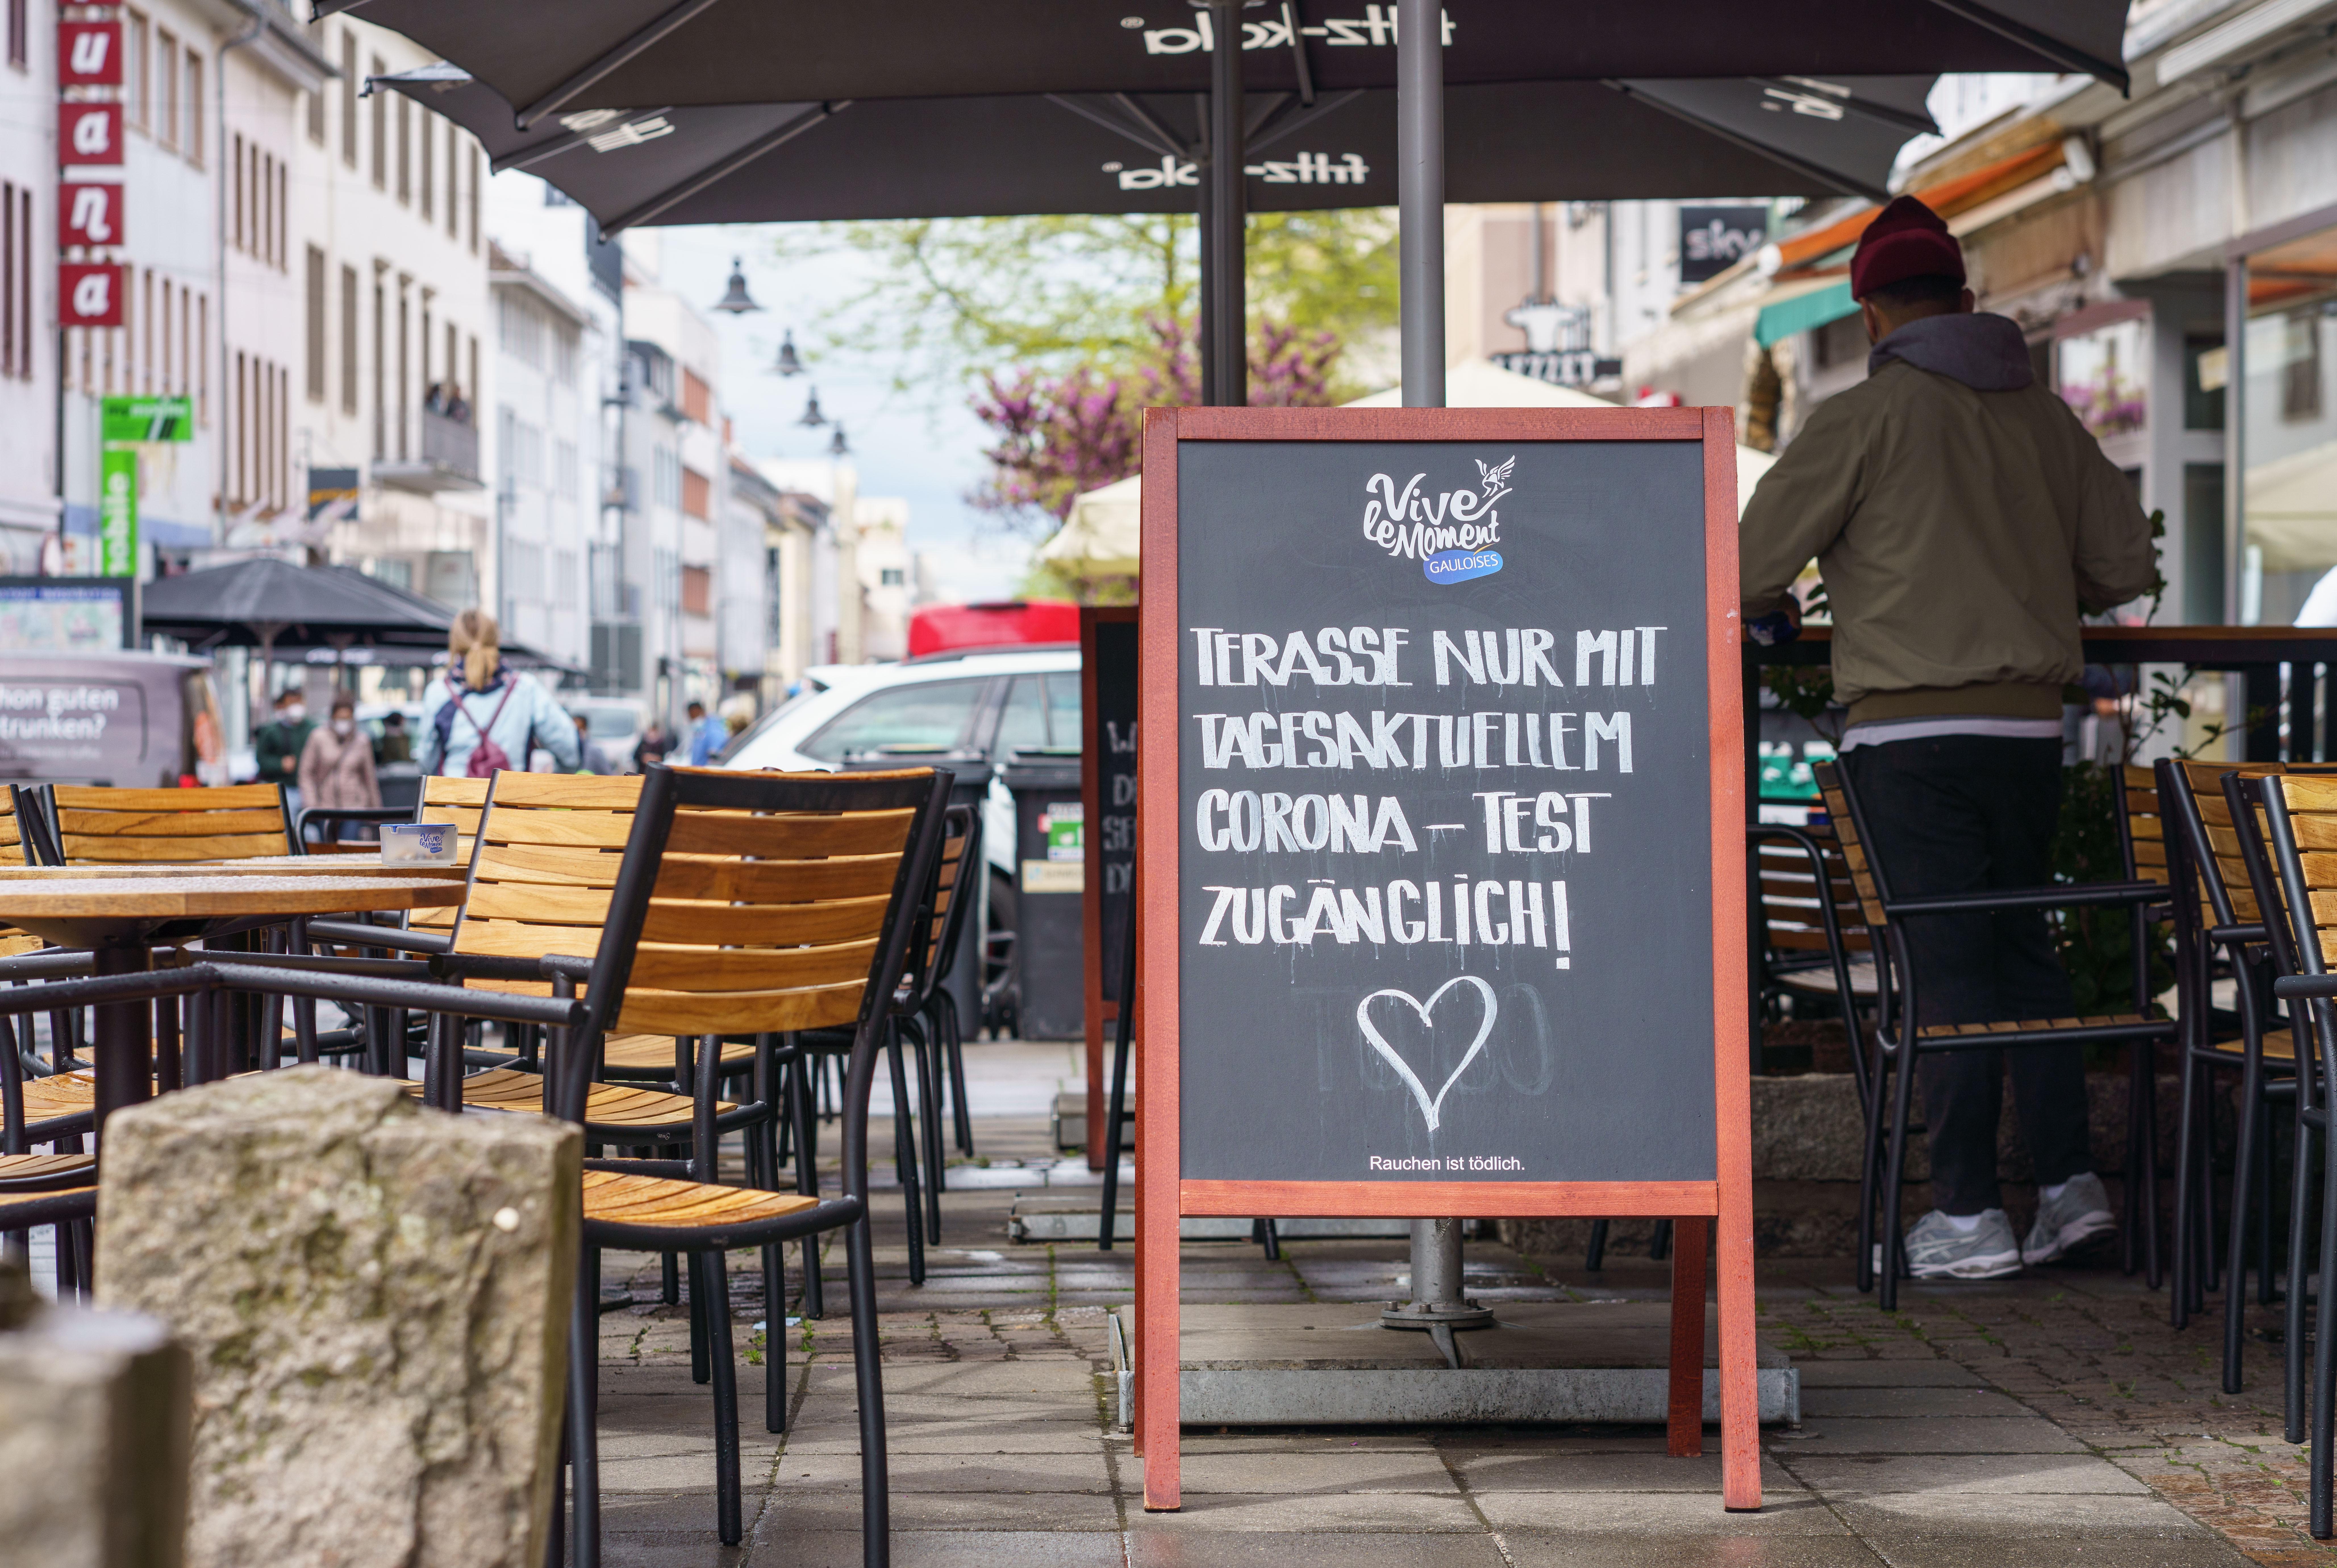 fritz-kola
fritz-kola
u
a
n
a
sky
mobile
hon guten
trunken?
Vive
le Moment
GAULOISES
TERASSE NUR MIT
TAGESAKTUELLEM
CORONA – TEST
ZUGÄNGLICH!
Rauchen ist tödlich.
Vive
le Moment